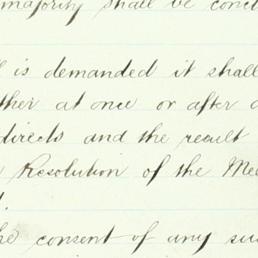 majority shall be
is demanded it shall
at once or after a
directs and the result
Resolution of the
the consent of any